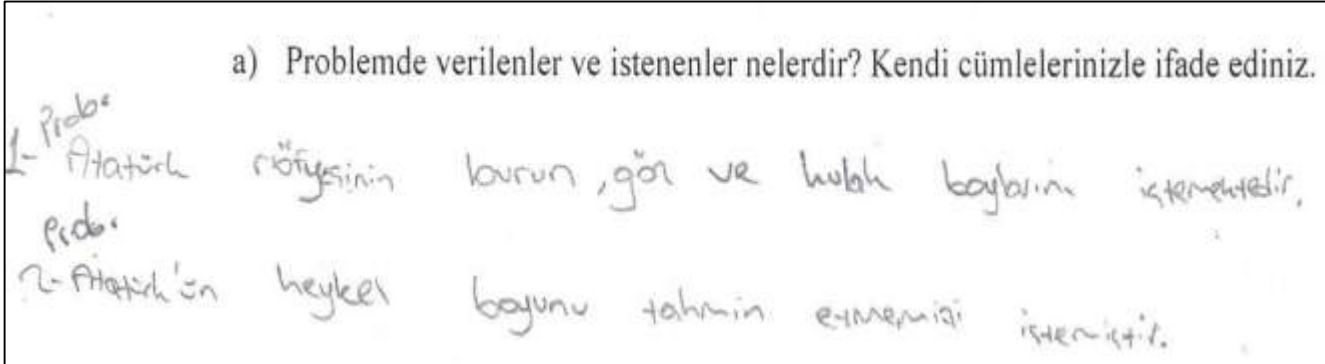 a) Problemde verilenler ve istenenler nelerdir? Kendi cümlelerinizle ifade ediniz.
Prob.
1- Atatürk rölyefinin burun, göz ve kulak boylarını istemektedir.
Prob.
2- Atatürk'ün heykel boyunu tahmin etmemizi istemiştir.